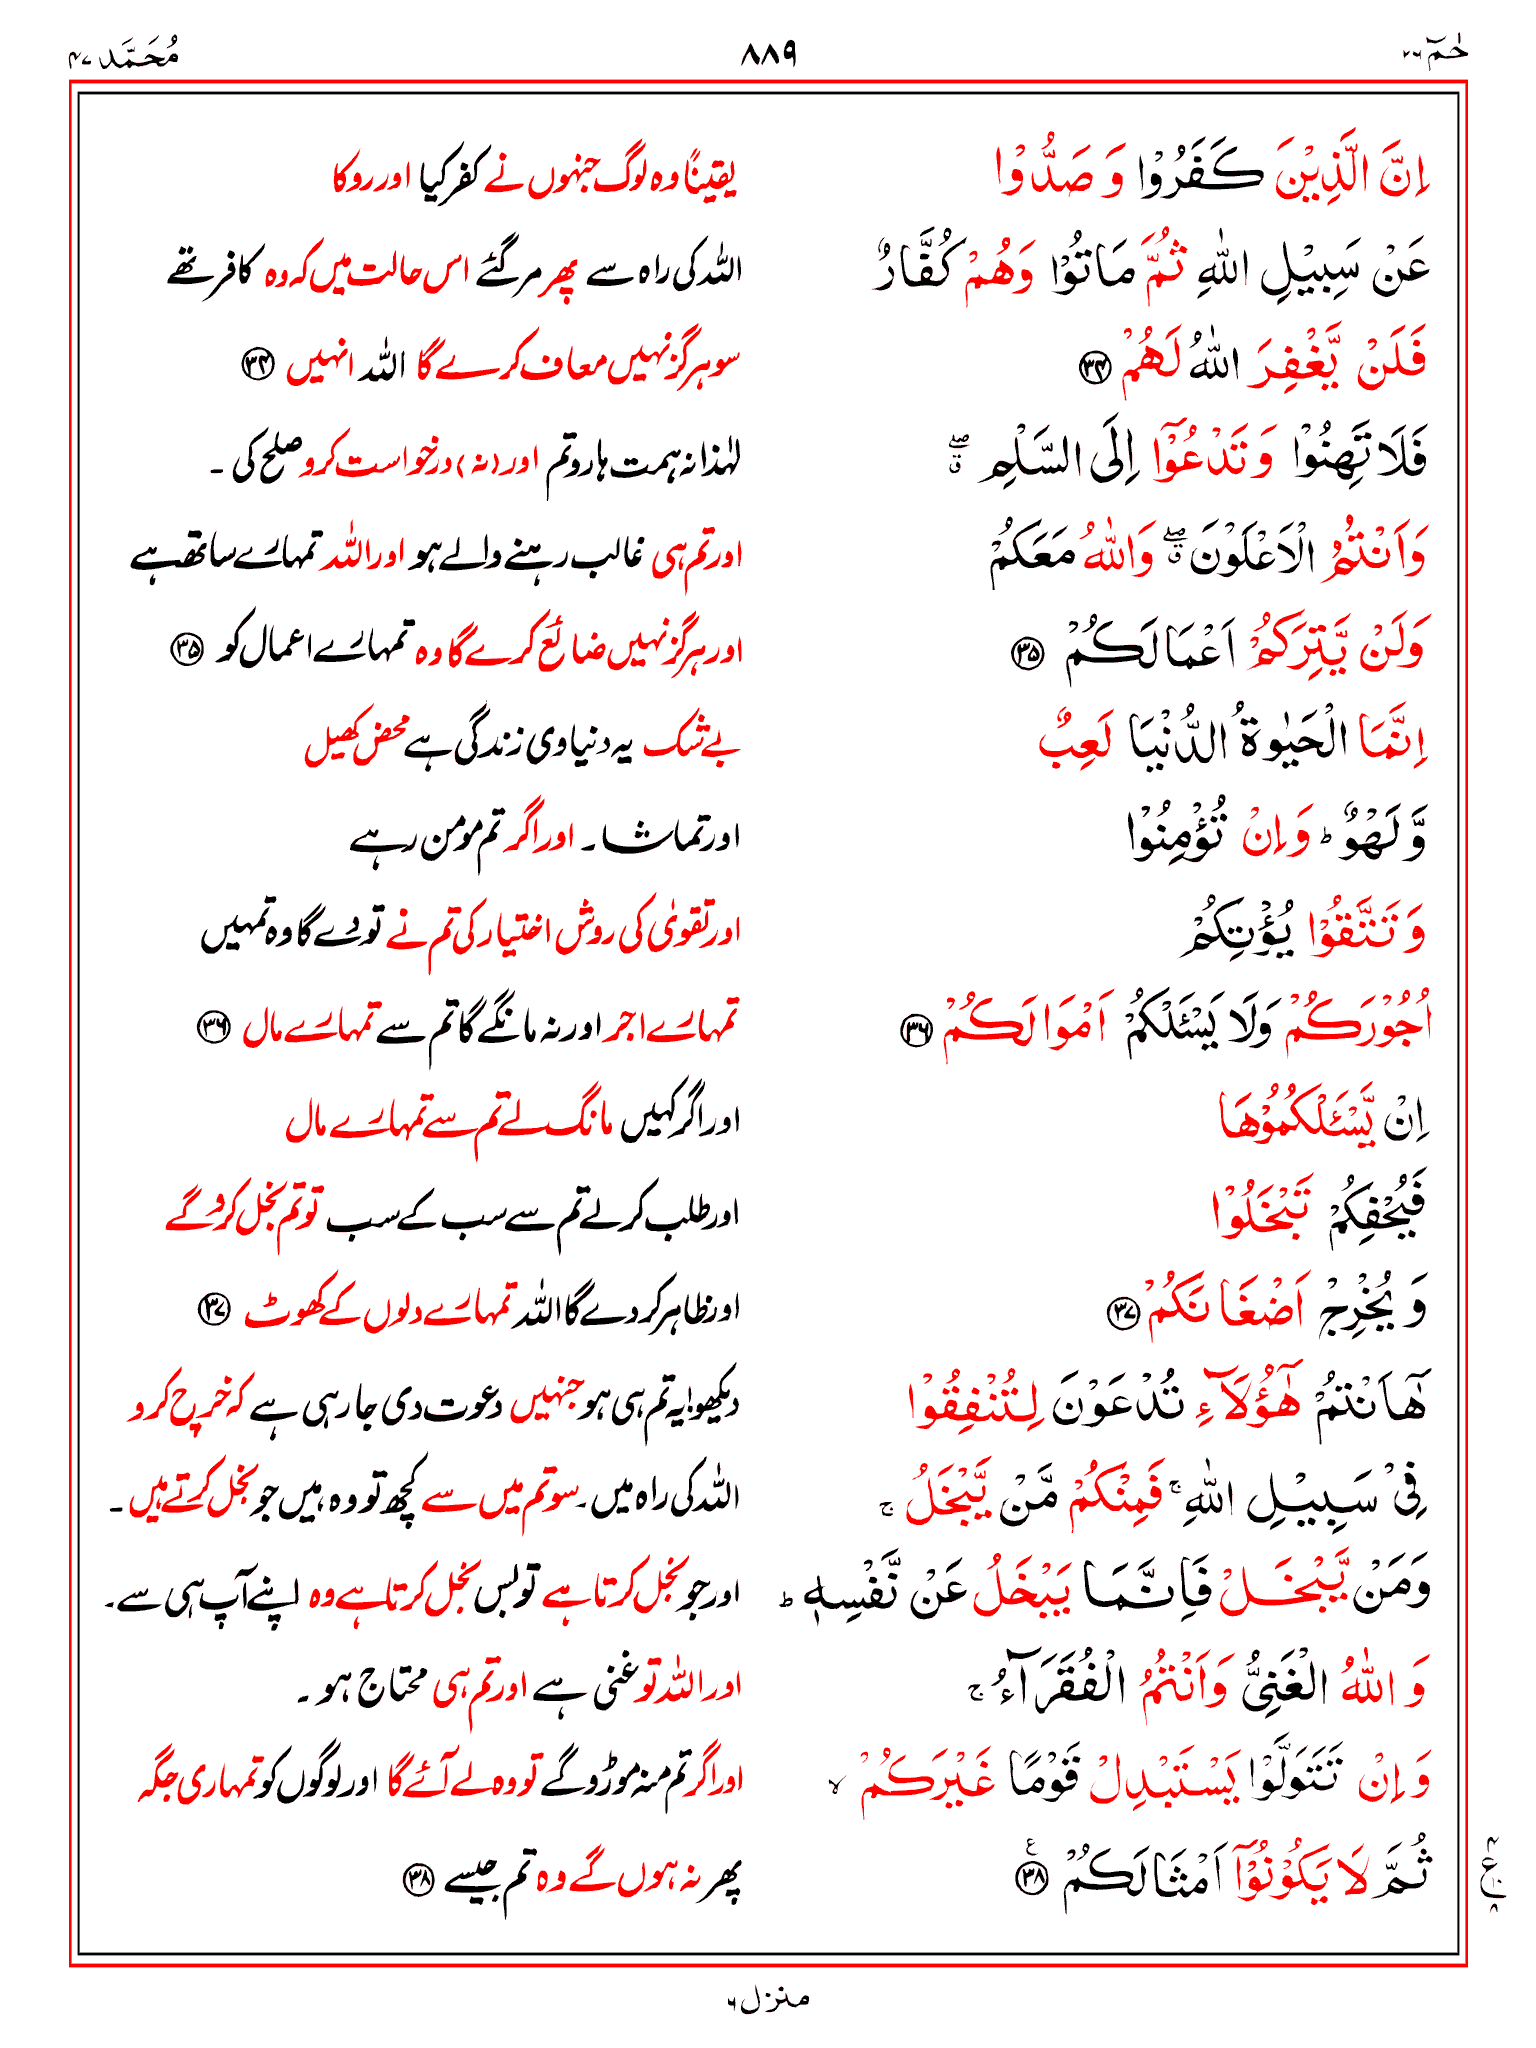 حٰمٓ ۲۶ ۸۸۹ مُحَمَّد ۴۷
اِنَّ الَّذِيْنَ كَفَرُوْا وَ صَدُّوْا یقیناً وہ لوگ جنہوں نے کفر کیا اور روکا
عَنْ سَبِيْلِ اللّٰهِ ثُمَّ مَاتُوْا وَهُمْ كُفَّارٌ اللہ کی راہ سے پھر مر گئے اس حالت میں کہ وہ کافر تھے
فَلَنْ يَّغْفِرَ اللّٰهُ لَهُمْ ۝۳۴ سو ہرگز نہیں معاف کرے گا اللہ انہیں ۝۳۴
فَلَا تَهِنُوْا وَتَدْعُوْٓا اِلَى السَّلْمِ ۖۗ لہٰذا نہ ہمت ہارو تم اور (نہ) درخواست کرو صلح کی ۔
وَاَنْتُمُ الْاَعْلَوْنَ ۖۗ وَاللّٰهُ مَعَكُمْ اور تم ہی غالب رہنے والے ہو اور اللہ تمہارے ساتھ ہے
وَلَنْ يَّتِرَكُمْ اَعْمَالَكُمْ ۝۳۵ اور ہرگز نہیں ضائع کرے گا وہ تمہارے اعمال کو ۝۳۵
اِنَّمَا الْحَيٰوةُ الدُّنْيَا لَعِبٌ بے شک یہ دنیاوی زندگی ہے محض کھیل
وَّلَهْوٌ ؕ وَاِنْ تُؤْمِنُوْا اور تماشا ۔ اور اگر تم مومن رہے
وَتَتَّقُوْا يُؤْتِكُمْ اور تقویٰ کی روش اختیار کی تم نے تو دے گا وہ تمہیں
اُجُوْرَكُمْ وَلَا يَسْـَٔلْكُمْ اَمْوَالَكُمْ ۝۳۶ تمہارے اجر اور نہ مانگے گا تم سے تمہارے مال ۝۳۶
اِنْ يَّسْـَٔلْكُمُوْهَا اور اگر کہیں مانگ لے تم سے تمہارے مال
فَيُحْفِكُمْ تَبْخَلُوْا اور طلب کرلے تم سے سب کے سب تو تم بخل کرو گے
وَيُخْرِجْ اَضْغَانَكُمْ ۝۳۷ اور ظاہر کردے گا اللہ تمہارے دلوں کے کھوٹ ۝۳۷
هٰٓاَنْتُمْ هٰٓؤُلَآءِ تُدْعَوْنَ لِتُنْفِقُوْا دیکھو! یہ تم ہی ہو جنہیں دعوت دی جارہی ہے کہ خرچ کرو
فِيْ سَبِيْلِ اللّٰهِ ۚ فَمِنْكُمْ مَّنْ يَّبْخَلُ ۚ اللہ کی راہ میں ۔ سو تم میں سے کچھ تو وہ ہیں جو بخل کرتے ہیں ۔
وَمَنْ يَّبْخَلْ فَاِنَّمَا يَبْخَلُ عَنْ نَّفْسِهٖ ؕ اور جو بخل کرتا ہے تو بس بخل کرتا ہے وہ اپنے آپ ہی سے ۔
وَاللّٰهُ الْغَنِيُّ وَاَنْتُمُ الْفُقَرَآءُ ۚ اور اللہ تو غنی ہے اور تم ہی محتاج ہو ۔
وَاِنْ تَتَوَلَّوْا يَسْتَبْدِلْ قَوْمًا غَيْرَكُمْ ۙ اور اگر تم منہ موڑو گے تو وہ لے آئے گا اور لوگوں کو تمہاری جگہ
ثُمَّ لَا يَكُوْنُوْٓا اَمْثَالَكُمْ ۝۳۸ۧ پھر نہ ہوں گے وہ تم جیسے ۝۳۸
۴ ع ۱۰ ۸
منزل ۶